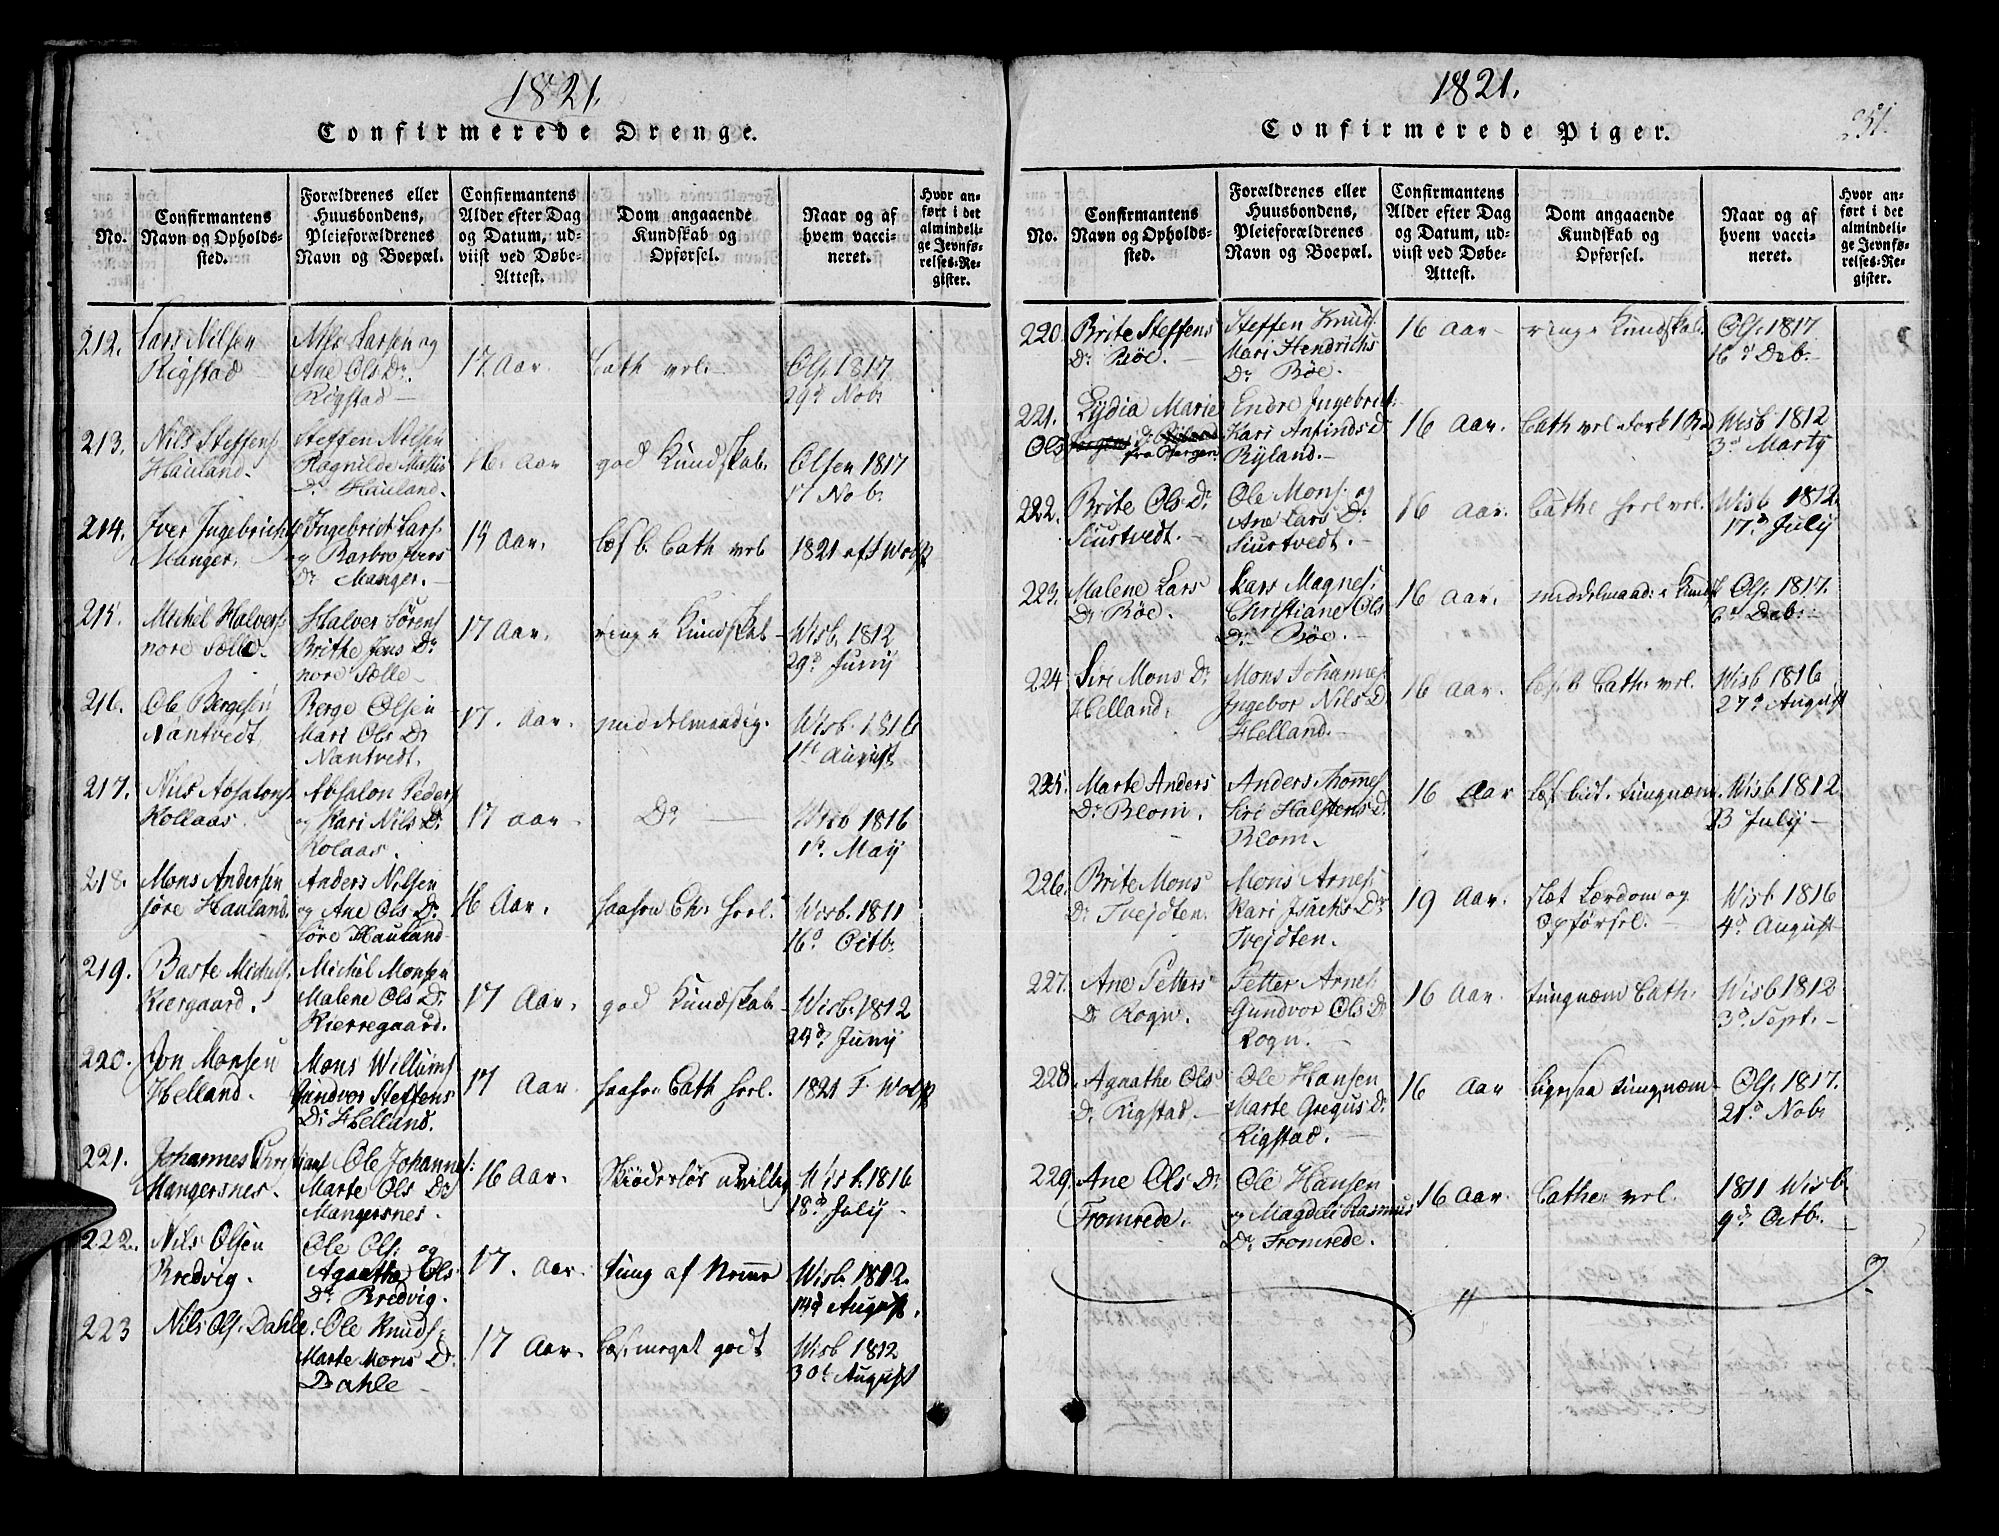 1821.
Confirmerede Drenge.
No.
Confirmantens
Navn og Opholds-
sted.
Forældrenes eller
Huusbondens,
Pleieforældrenes
Navn og Boepæl.
Confirmantens
Alder efter Dag
og Datum, ud-
viist ved Døbe-
Attest.
Dom angaaende
Kundskab og
Opførsel.
Naar og af
hvem vacci-
neret.
Hvor an-
ført i det
almindeli-
ge Jevnfø-
relses-Re-
gister.
212. Lars Nilsen
Rigstad
Nils Larsen og
Ane Ols Dr
Rigstad
17 Aar.
Cath vel
Ols 1817
29d Nobr
213. Nils Steffens
Hauland.
Steffen Nilsen
Ragnilde
Dr Hauland.
16. Aar
god Kundskab.
Olsen 1817
17 Nobr
214. Iver Ingebrichs
Manger.
Ingebrict Lars
og Barbro Ivers
Dr Manger.
Aar.
læs b. Cath vel
1821 af F Wolf
215. Michel Halvers
nore Sælle.
Halver Sørens
Brithe Jens Dr
nore Sælle
17 Aar.
ringe Kundskab
Wisb. 1812
29d Junij
216. Ole Bergesen
Nantvedt
Berge Olsen
Mari Ols Dr
Nantvedt.
17. Aar.
middelmaadig.
Wisb. 1816
1st August
217. Nils Absalons
Kollaas.
Absalon Peders
og Kari Nils Dr
Kolaas.
17 aar
Do
Wisb 1816
1st May
218. Mons Andersen
søre Hauland.
Anders Nilsen
og Ane Ols Dr
søre Hauland
16 Aar.
saasom
Wisb. 1811
16d Octb.
219. Baste Michels
Kiergaard.
Michel Monsen
Malene Ols Dr
Kierregaard.
17 Aar.
god Kundskab
Wisb. 1812
24d Junij
220. Jon Monsen
Helland.
Mons Willums
Gundvor Steffens
Dr Helland.
17 Aar.
saasom Cath
1821 F. Wolf
221. Johannes Christians
Mangersnes.
Ole Johannes
Marte Ols Dr
Mangersnes.
16 Aar.
Skiødesløs uvillig
Wisb. 1816
18d July
222. Nils Olsen
Bredvig.
Ole Ols og
Agaathe Ols
Dr Bredvig.
17. Aar.
tung af Nemme
Wisb. 1812.
14d August.
223 Nils Ols. Dahle
Ole Knuds
Marte Mons Dr
Dahle
17 Aar.
læs. meget godt
Wisb 1812
30d August
1821.
251.
Confirmerede Piger.
No.
Confirmantens
Navn og Opholds-
sted.
Forældrenes eller
Huusbondens,
Pleieforældrenes
Navn og Boepæl.
Confirmantens
Alder efter Dag
og Datum, ud-
viist ved Døbe-
Attest.
Dom angaaende
Kundskab og
Opførsel.
Naar og af
hvem vacci-
neret.
Hvor an-
ført i det
almindeli-
ge Jevnfø-
relses-Re-
gister.
220. Brite Steffens
Dr Bøe.
Steffen Knuds
Mari Hendrichs
Dr Bøe.
16 Aar
ringe Kundskab.
Ols. 1817
16d Deb.
221. Lydia Marie
Ols Dr
fra Bergen.
Endre Ingebrict
Kari Anfinds Dr
Ryland.
16 Aar.
Cath vel
Wisb 1812
3d Marty
222. Brite Ols Dr
Siurtvedt.
Ole Mons og
Ane Lars Dr
Siurtvedt.
16 Aar.
Cathe vel.
Wisb 1812.
17d July
223. Malene Lars
Dr Bøe.
Lars Magnes
Christiane Ols
Dr Bøe.
16 Aar.
middelmaad: i Kundsk
Ols. 1817.
6d Deb.
224 Siri Mons Dr
Helland.
Mons Johannes
Ingebor Nils Dr
Helland.
16 Aar.
læs b Cath. vel.
Wisb 1816
27d August
225. Marte Anders
Dr Blom.
Anders Thomes
Siri Halstens Dr
Blom.
16 Aar
læs lidt. tungnæm.
Wisb 1812.
13 July
226. Brite Mons
Dr Tvejdten.
Mons Arnes
Kari Isachs Dr
Tvejdten.
19 Aar.
slæt Lærdom og
Opførsel.
Wisb 1816
4d August
227. Ane Petters
Dr Rogn.
Petter Arnes
Gundvor Ols Dr
Rogn.
16 Aar.
tungnæm Cath.
Wisb 1812
3d Sept.
228. Agnathe Ols
Dr Rigstad
Ole Hansen
Marte Gregus Dr
Rigstad.
16 Aar
ligesaa tungnæm
Ols. 1817.
21d Nobr
229 Ane Ols Dr
Fromrede.
Ole Hansen
og Magdeli Rasmus
Dr Fromrede.
16 Aar.
Cathe vel.
1811 Wisb
9d Octb.